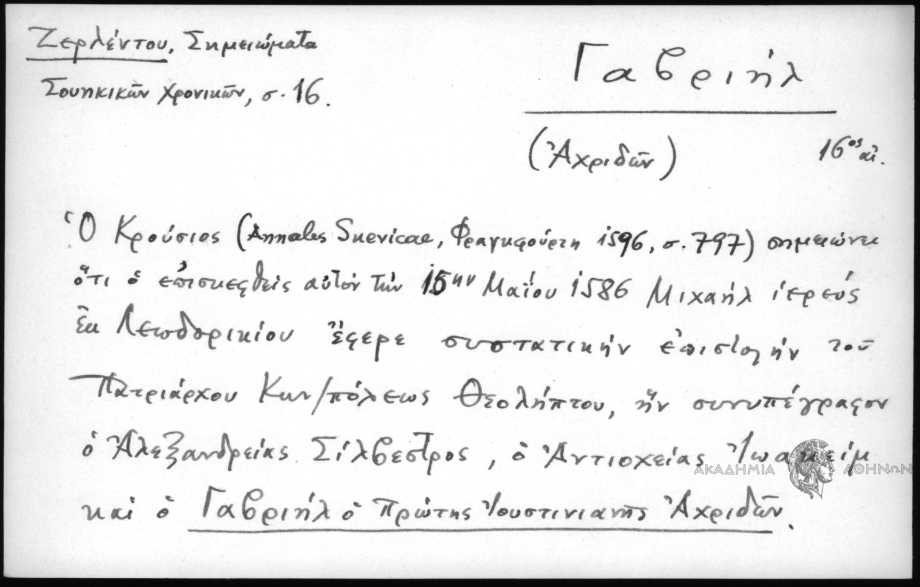 Ζερλέντου, Σημειώματα
Σουηκικῶν χρονικῶν, σ. 16.
Γαβριήλ
(Ἀχριδῶν)
16ος αἰ.
Ὁ Κρούσιος (Annales Suevicae, Φραγκφούρτη 1596, σ. 797) σημειώνει
ὅτι ὁ ἐπισκεφθείς αὐτόν τήν 15ην Μαΐου 1586 Μιχαήλ ἱερεύς
ἐκ Λεωδορικίου ἔφερε συστατικήν ἐπιστολήν τοῦ
Πατριάρχου Κων/πόλεως Θεολήπτου, ἥν συνυπέγραφον
ὁ Ἀλεξανδρείας Σίλβεστρος, ὁ Ἀντιοχείας Ἰωακείμ
καί ὁ Γαβριήλ ὁ Πρώτης Ἰουστινιανῆς Ἀχριδῶν.
ΑΚΑΔΗΜΙΑ ΑΘΗΝΩΝ